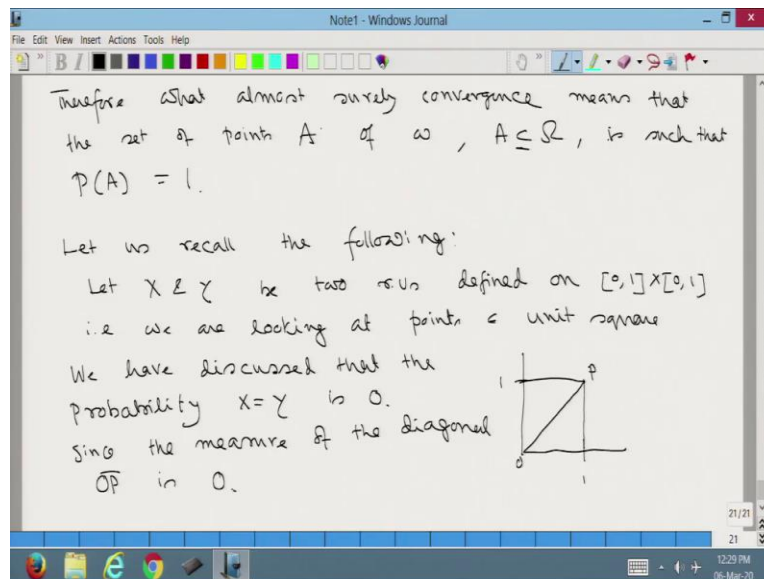 Note1 - Windows Journal
File Edit View Insert Actions Tools Help
B I
Therefore what almost surely convergence means that
the set of points A of ω, A ⊆ Ω, is such that
P(A) = 1.
Let us recall the following:
Let X & Y be two r.vs defined on [0,1]×[0,1]
i.e we are looking at points ∈ unit square
We have discussed that the
probability X=Y is 0.
Since the measure of the diagonal
OP is 0.
1 P
0 1
21/21
21
12:29 PM
06-Mar-20